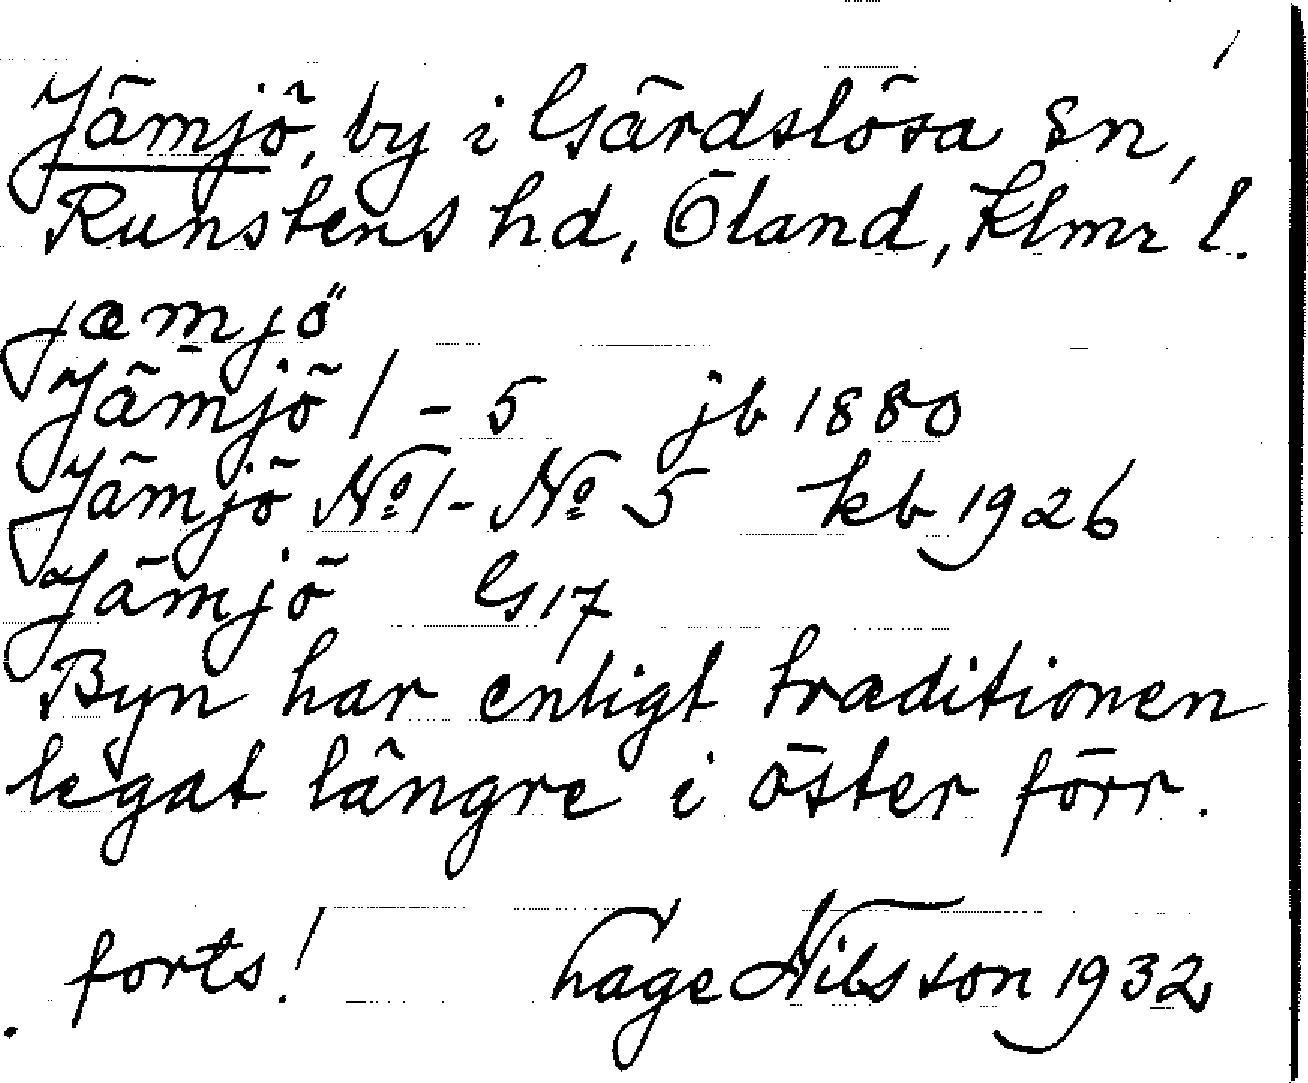 Jämjö, by i Gärdslösa sn,
Runstens hd, Öland, Klmr l.
jæmjö
Jämjö 1 - 5 jb 1880
Jämjö No 1 - No 5 kb 1926
Jämjö G 17
Byn har enligt traditionen
legat längre i öster förr.
forts! Hage Nilsson 1932